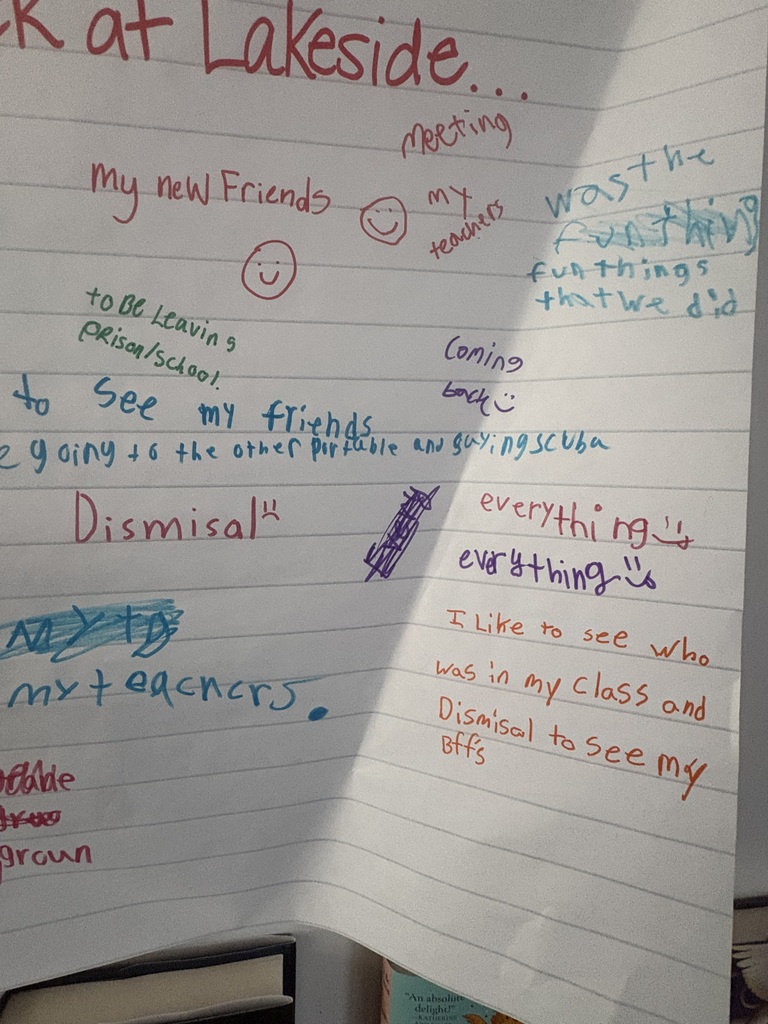 at Lakeside...
meeting
my new Friends
my
teachers
was the
fun thing
fun things
that we did
to Be Leaving
prison/school.
Coming
back
to see my friends
going to the other portable and saying scuba
Dismisal
everything
everything
my te
my teachers.
I Like to see who
was in my class and
Dismisal to see my
Bff's
groun
"An absolute
delight!"